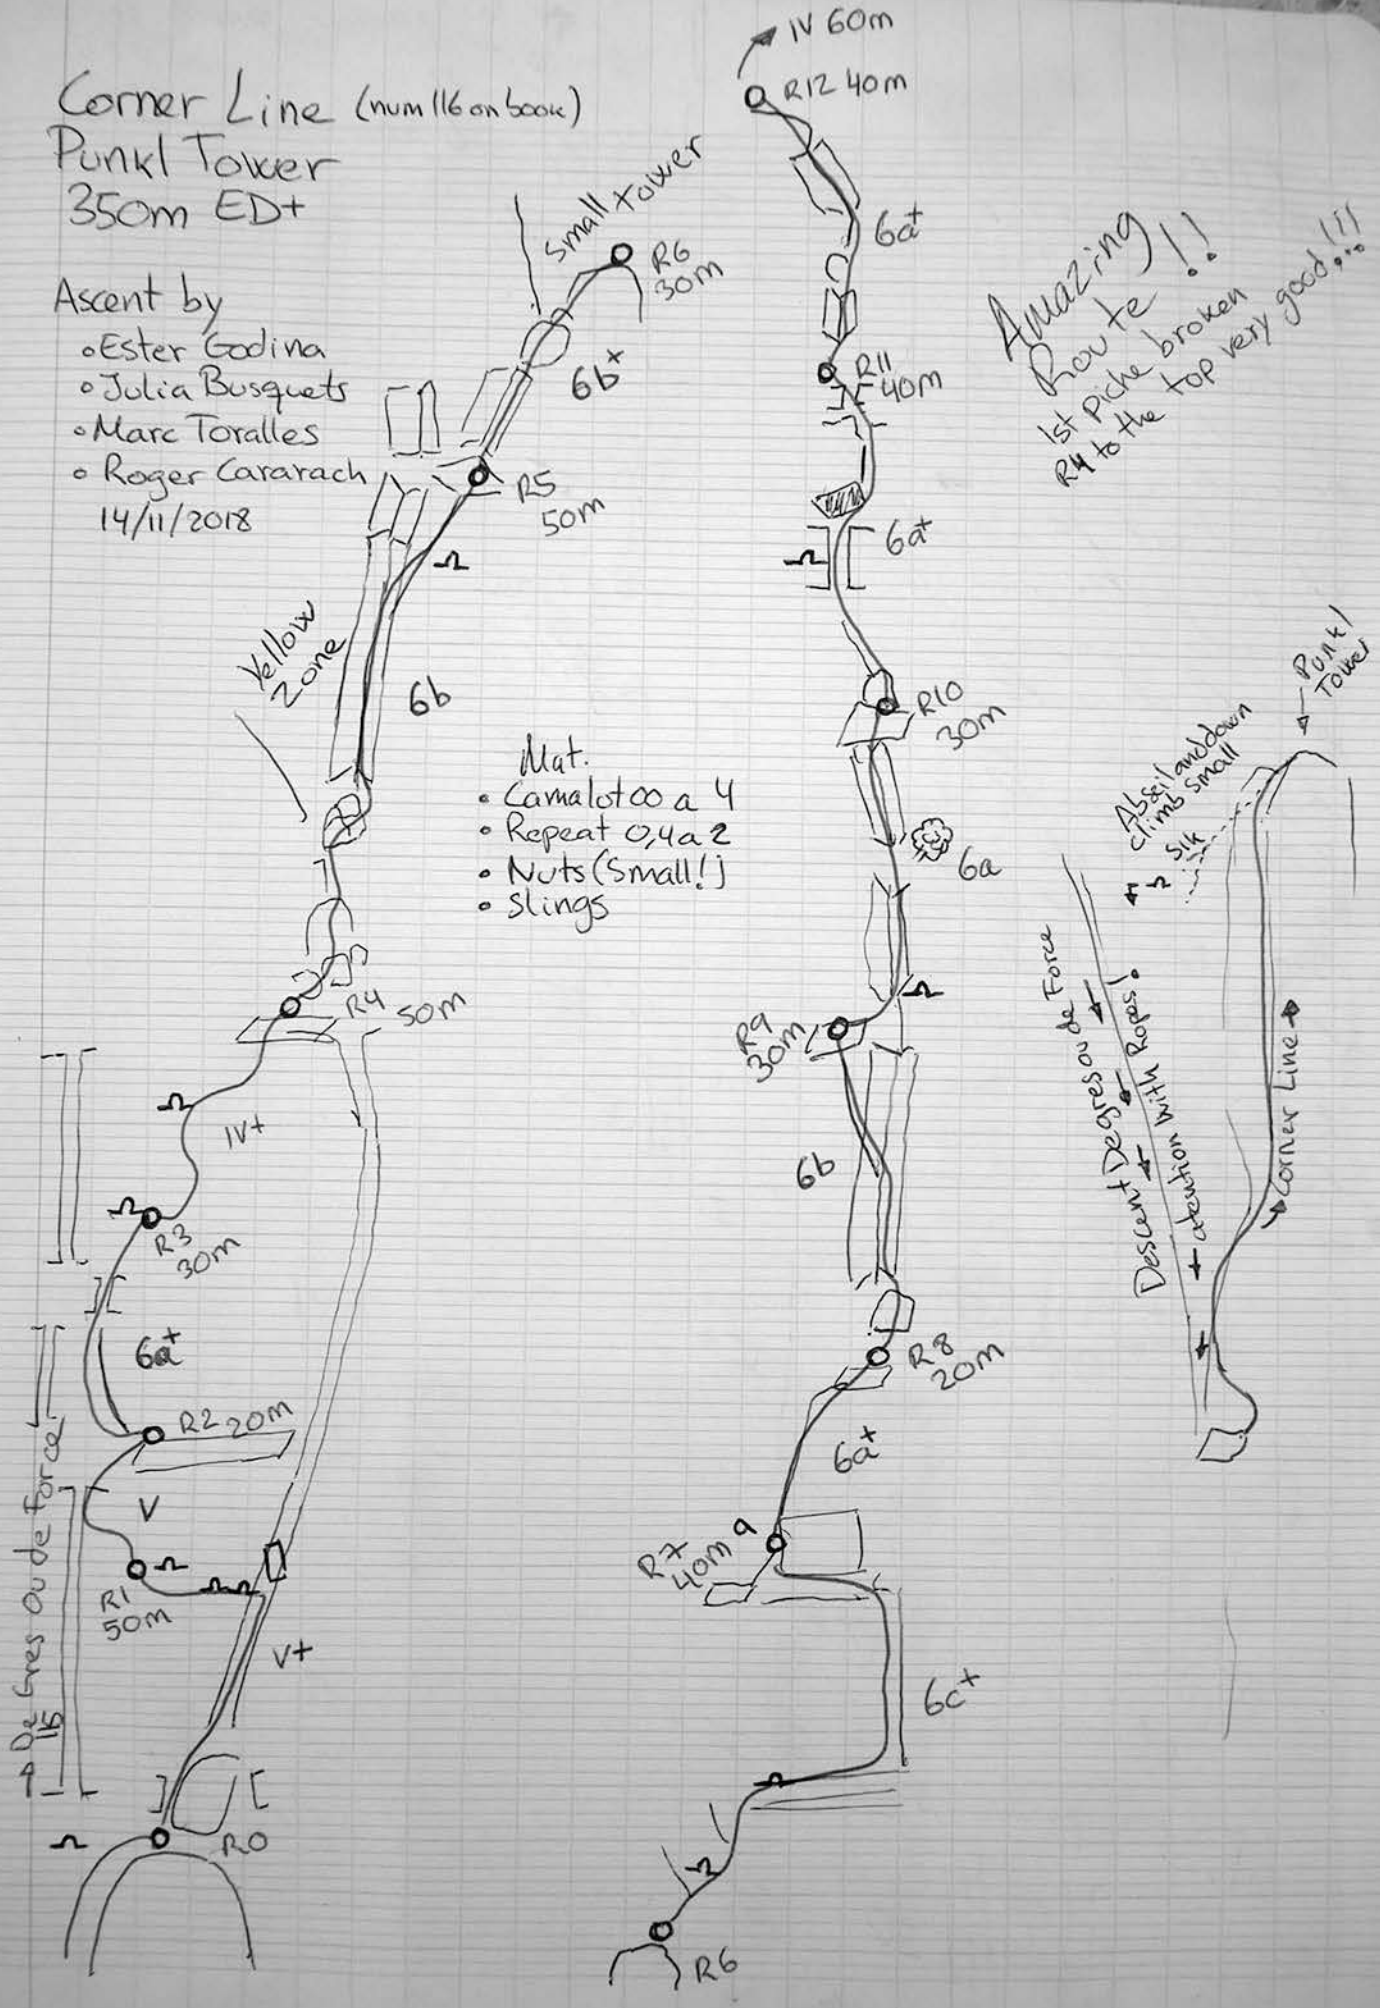 Corner Line (num 116 on book)
Punkl Tower
350m ED+
Ascent by
• Ester Godina
• Julia Busquets
• Marc Toralles
• Roger Cararach
14/11/2018
Small tower
R6
30m
6b+
R5
50m
Yellow
Zone
6b
R4 50m
IV+
R3
30m
6a+
R2 20m
V
R1
50m
V+
R0
→ De Gres Ou de Force
Mat.
• Camalot 00 a 4
• Repeat 0,4 a 2
• Nuts (Small!)
• Slings
IV 60m
R12 40m
6a+
R11
40m
6a+
R10
30m
6a
R9
30m
6b
R8
20m
6a+
R7
40m
6c+
R6
Amazing
Route !!
1st piche broken
R4 to the top very good!!!
Punkl
Tower
Abseil and down
climb small
Descent Degres ou de Force
atention with Ropes!
Corner Line